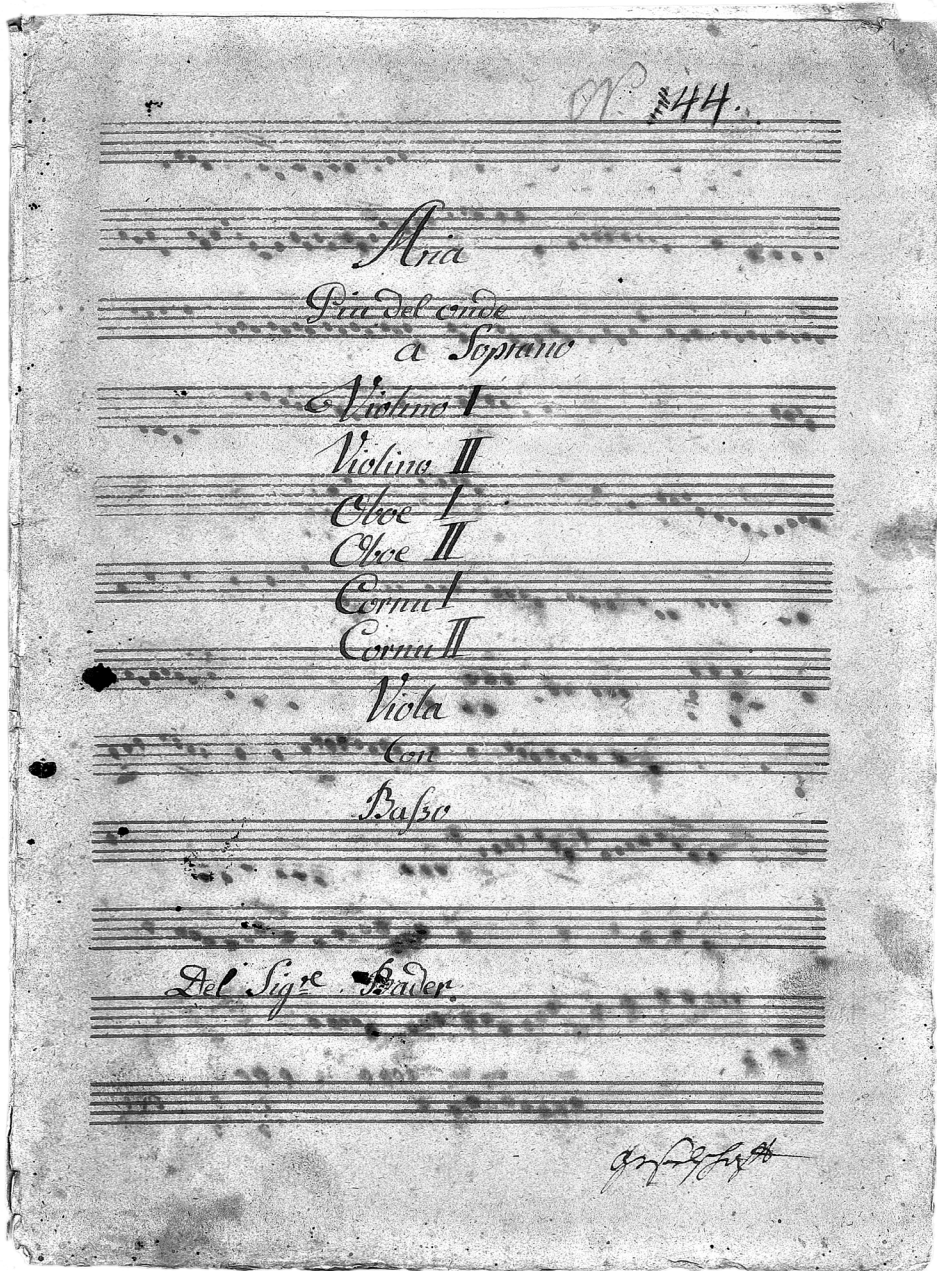 N. 44.
Aria
Piu del onde
a Soprano
Violino I
Violino II
Oboe I
Oboe II
Cornu I
Cornu II
Viola
Con
Baſso
Del Sigre Bader.